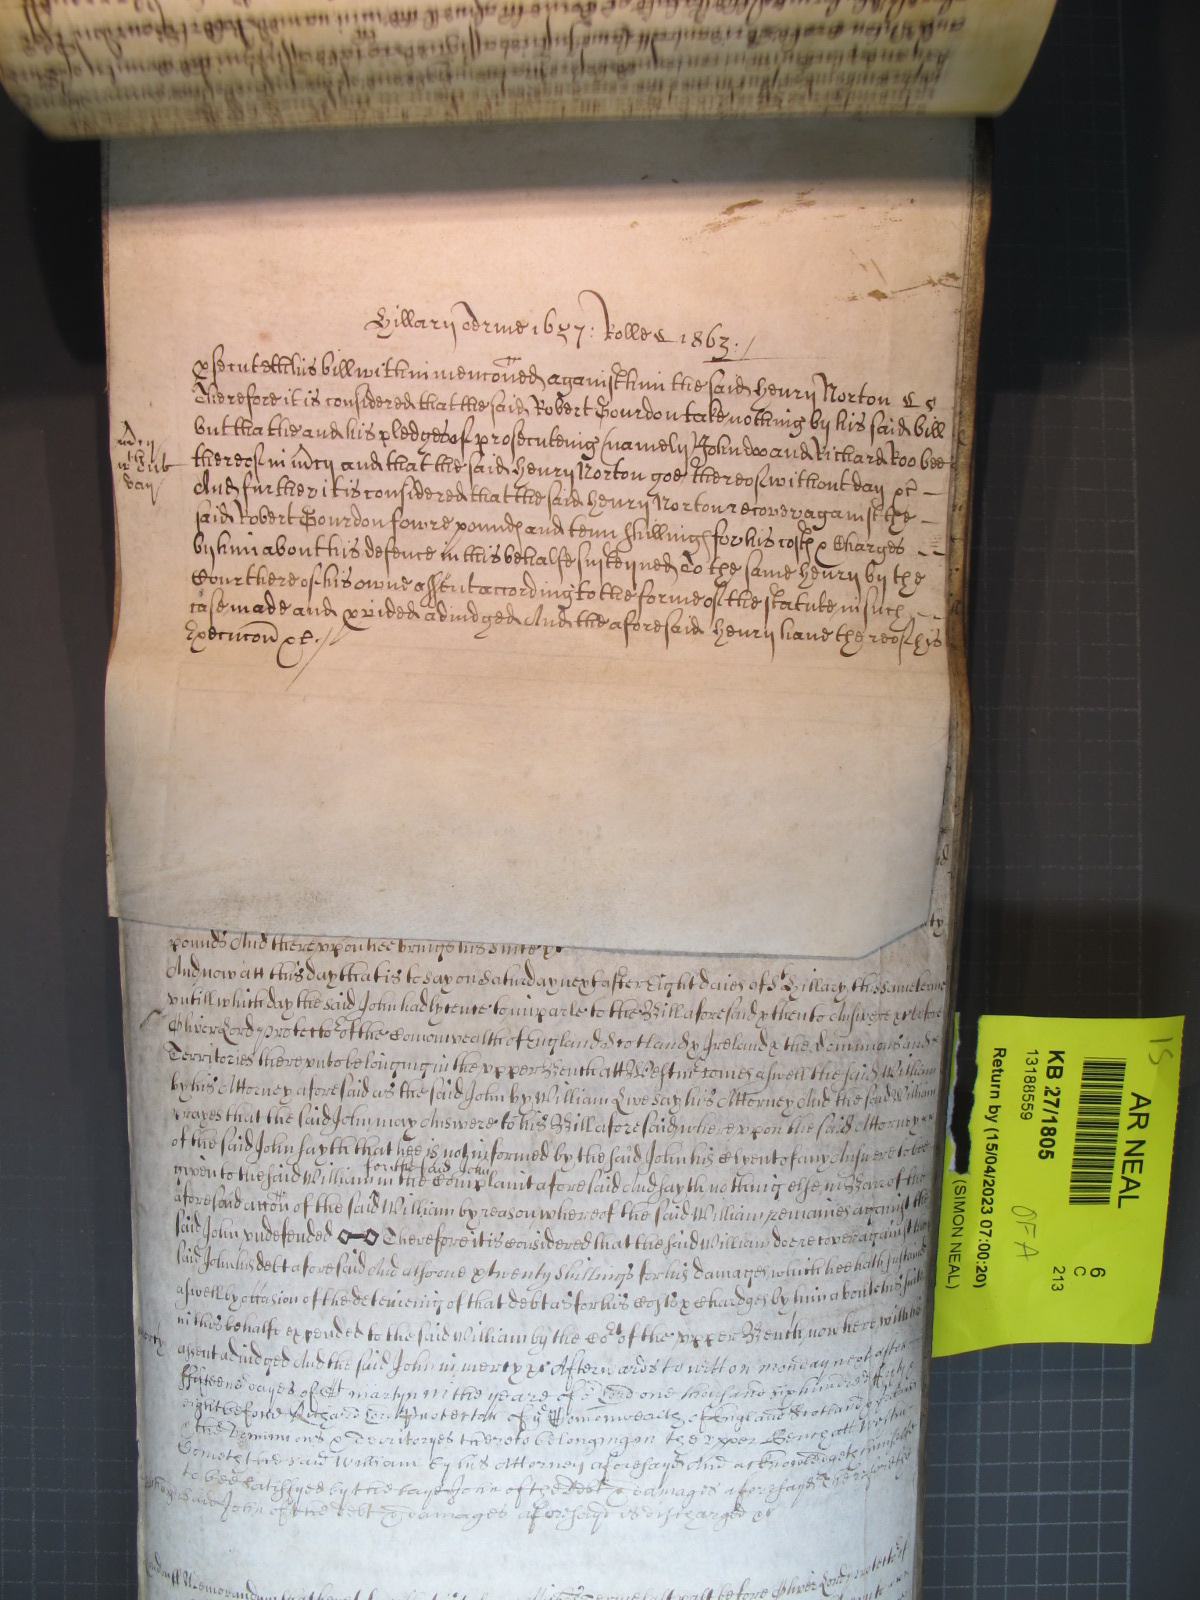 Hillary Terme 1657: Rolle 1863:/
psecuteth his bill within menconed against him the said Henry Norton
Therefore it is considered that the said Robert Gourdon take nothing by his said bill
but that he and his pledges of prosecuteing (namely John doo and Richard Roo bee
thereof in mcy and that the said Henry Norton goe thereof without day &c
And further it is considered that the said Henry Norton recover against the
said Robert Gourdon fowre pounds and tenn shillings for his costs & Charges
by him about his defence in this behalfe susteyned To the same Henry by the
Court here of his owne assent according to the forme of the statute in such
case made and pvided adiudged And the aforesaid Henry have thereof his
Execucon &c./
pounds And thereuppon hee brings his suite &c
And now att this day that is to say on Saturday next after Eight daies of St Hillary this same terme
untill which day the said John had lycence to imparle to the Bill aforesaid & then to Answere &c before
Oliver Lord Protector of the Comonwealth of England Scotland & Ireland & the Dominions and
Territories thereunto belonging in the upper Bench att Westm comes aswell the said William
by his Attorney aforesaid as the said John by William Livesay his Attorney And the said William
prayes that the said John may Answere to his Bill aforesaid whereupon the said Attorney
of the said John sayth that hee is not informed by the said John his Clyent of any Answere to bee
for the said John
given to the said William in the Complaint aforesaid And sayth nothing else in Barr of the
aforesaid accon of the said William by reason whereof the said William remaines against the
said John undefended Therefore it is Considered that the said William doe recover against the
said John his debt aforesaid And alsoe one & twenty Shillings for his damages which hee hath sustained
aswell by occasion of the deteineing of that debt as for his Costs & Chardges by him about his suite
in this behalfe expended to the said William by the Cort of the upper Bench now here with his
assent adiudged And the said John in mercy &c Afterwards to witt on Monday next after
fifteene dayes of St Martyn in the yeare of or Lord one thousand six hundred fifty
eight before Richard Lord Protector of ye Comonwealth of England Scotland & Ireland
& the Dominions & Territoryes thereto belonging in the upper Bench att Westmr
Cometh the said William by his Attorney aforesayd And acknowledgeth himselfe
to bee satisfyed by the sayd John of the Debt & damages aforesayd Therefore the
said John of the debt & damages aforesayd is discharged &c
Memorandum that
AR NEAL
KB 27/1805
13188559
Return by (15/04/2023 07:00:20)
(SIMON NEAL)
6
C
213
OFA
15